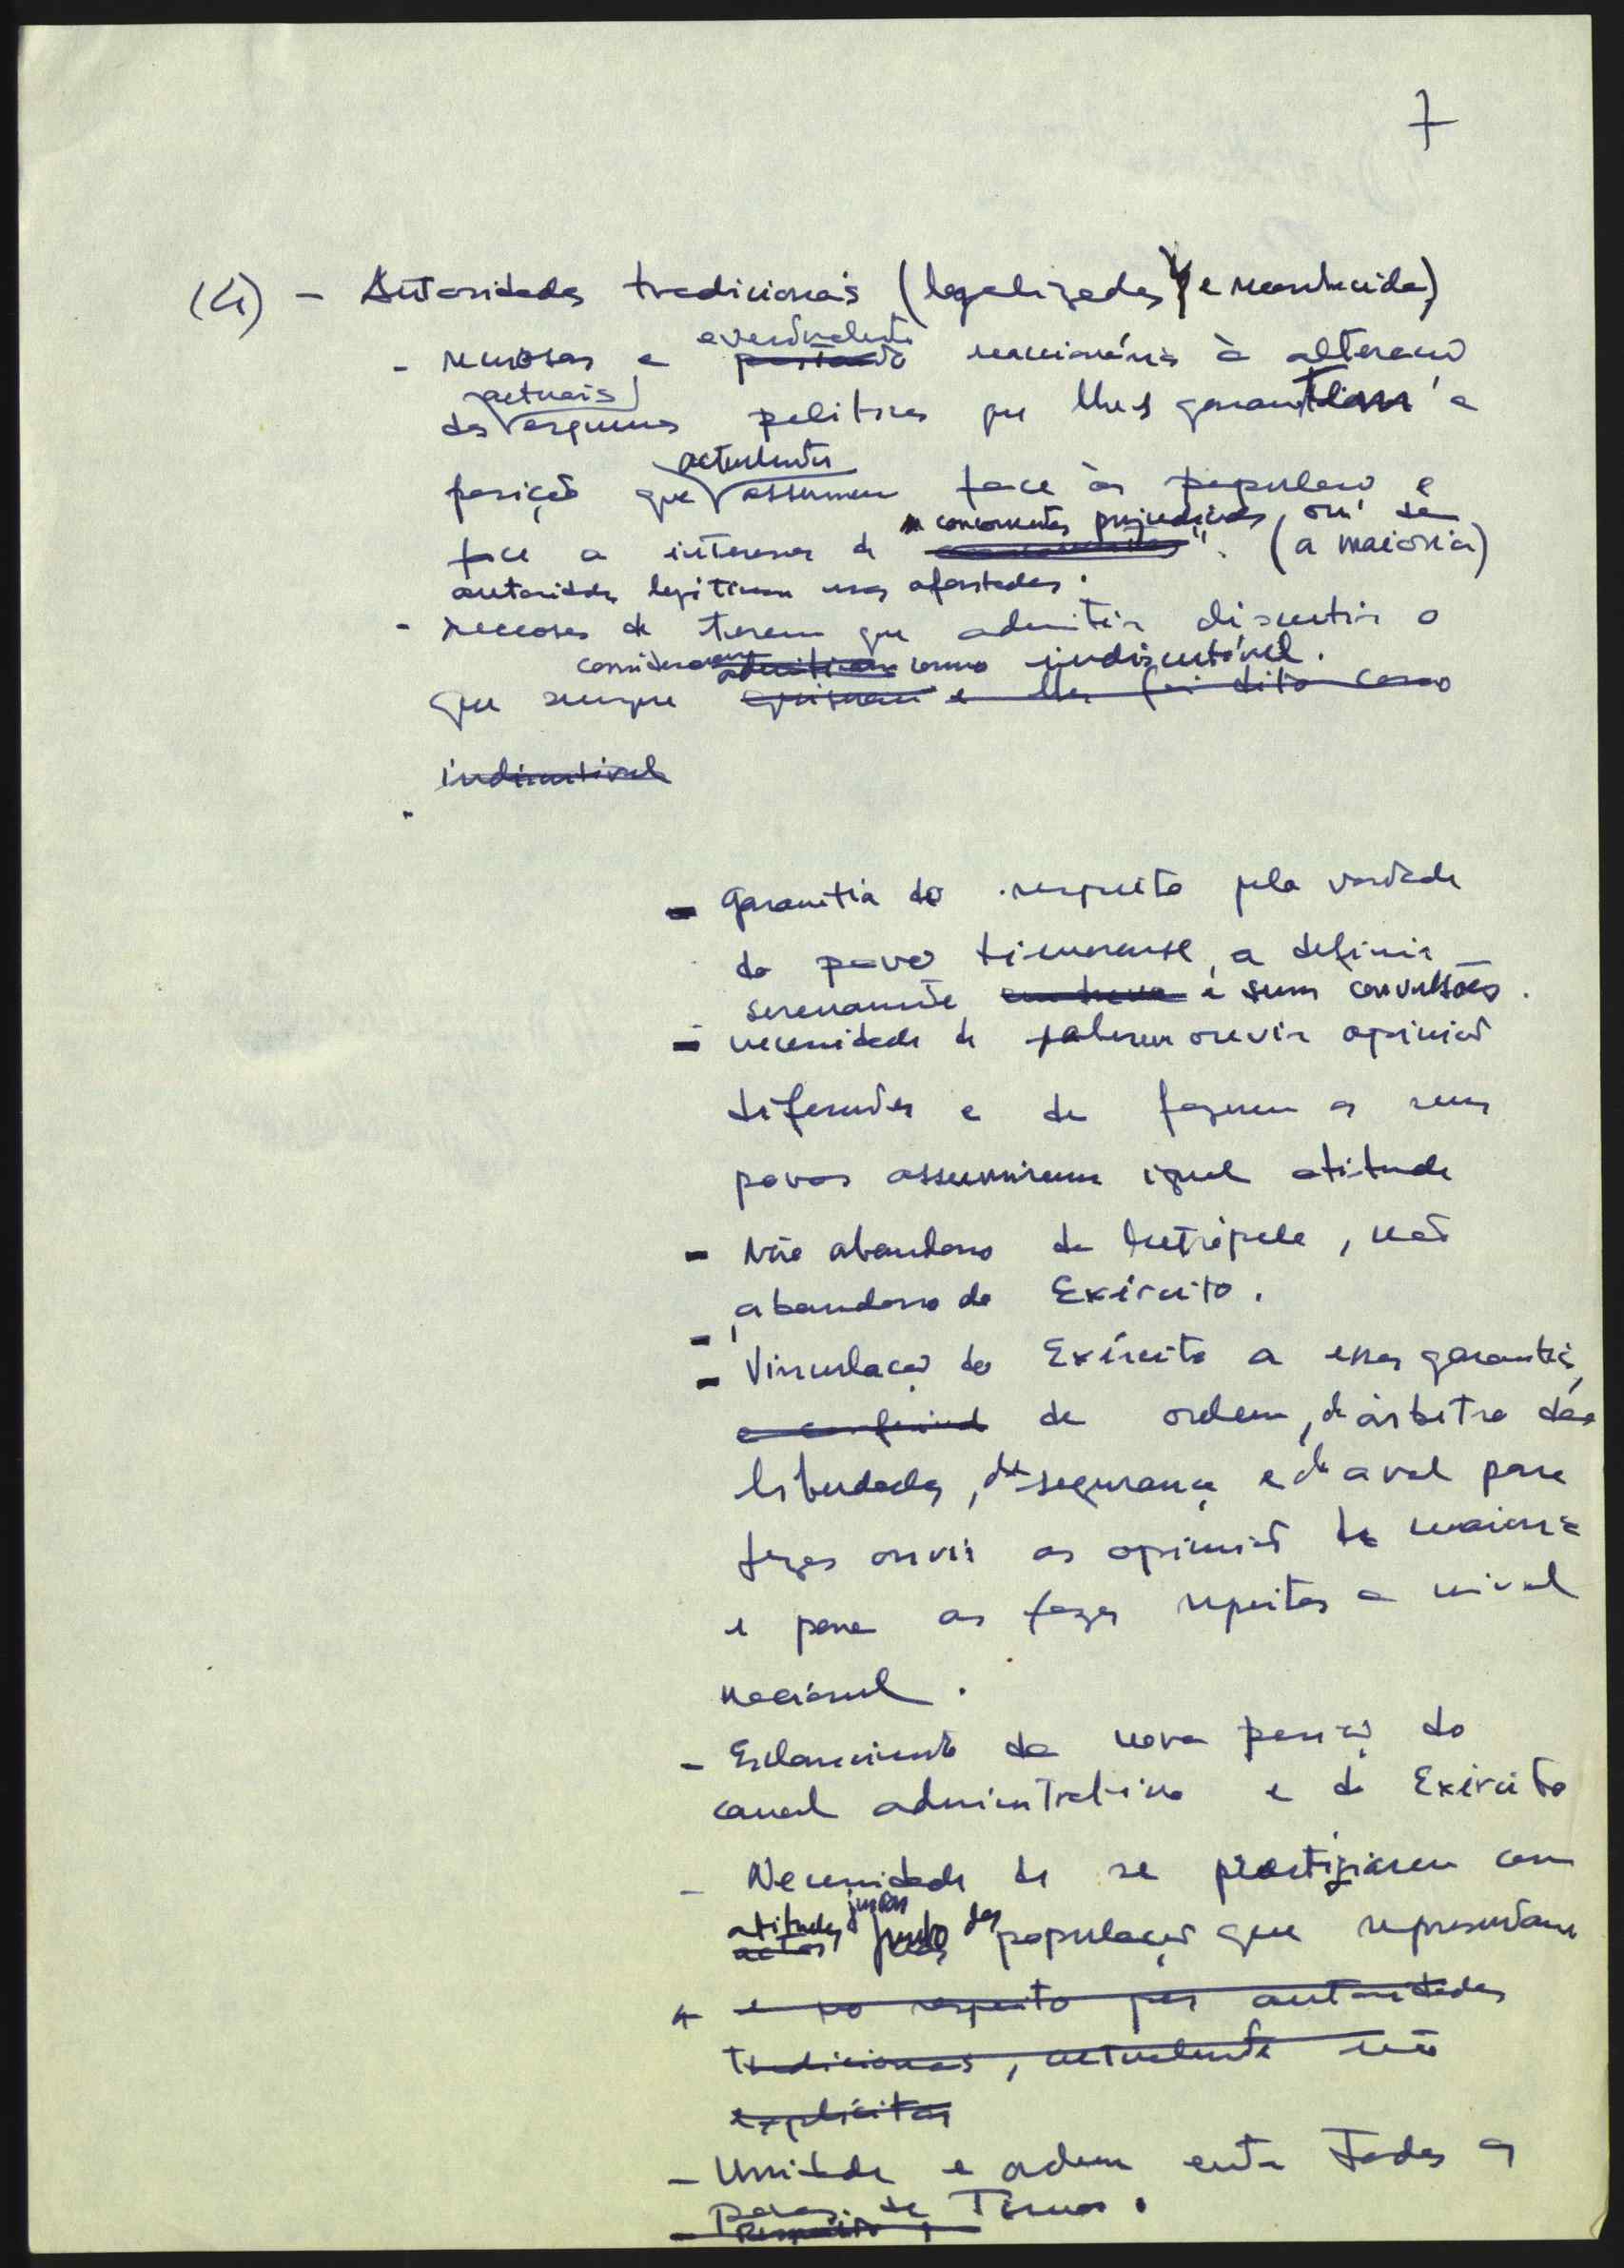 7
(4) - Autoridades tradicionais (legalizadas e reconhecidas)
eventualmente
- receosas e reaccionárias à alteração
actuais
dos esquemas politicos que lhes garantiam a
actualmente
posição que assumem face às populações e
concorrentes prejudicados, ou de
face a interesses de (a maioria)
autoridades legitimas mas afastadas.
- receosas de terem que admitir discutir o
consideraram como indiscutível.
que sempre e lhes foi dito como
indiscutivel
- Garantia do respeito pela vontade
do povo timorense, a definir
serenamente e sem convulsões.
- necessidade de saberem ouvir opiniões
diferentes e de fazerem os seus
povos assumirem igual atitude
- Não abandono da Metrópole, não
abandono do Exército.
- Vinculação do Exército a essas garantias,
de ordem, de árbitro das
liberdades, de segurança e de aval para
fazer ouvir as opiniões da maioria
e para as fazer respeitar a nivel
nacional.
- Esclarecimento da nova posição do
canal administrativo e do Exército
- Necessidade de se prestigiarem com
atitudes justas
actos junto das populações que representam
e no respeito por autoridades
tradicionais, actualmente não
explícitas
- Unidade e ordem entre todos os
Povos de Timor.